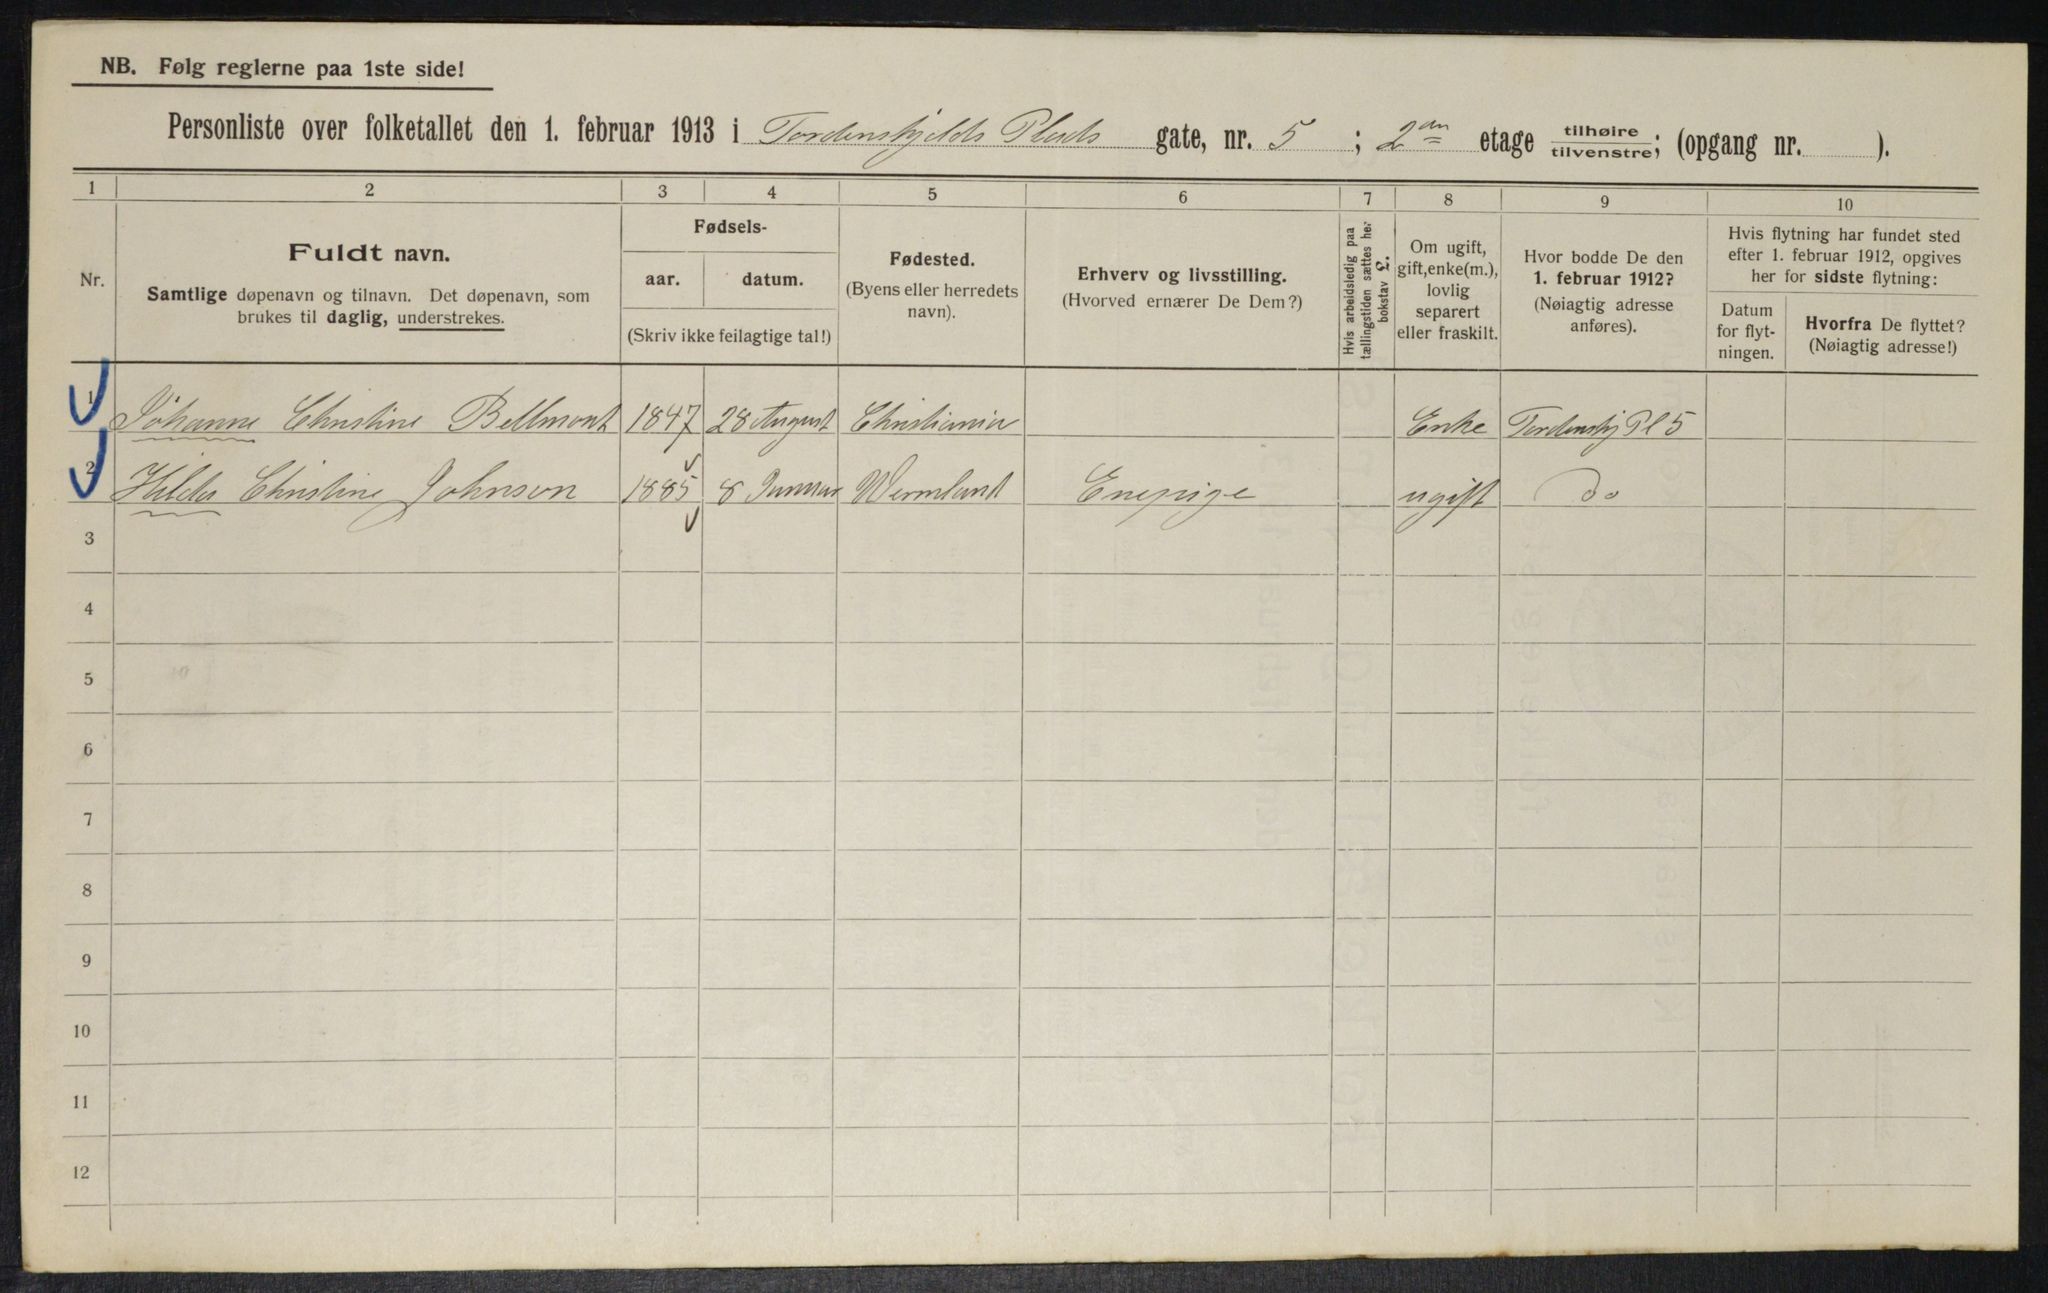 NB. Følg reglerne paa 1ste side!
Personliste over folketallet den 1. februar 1913 i Tordenskjolds Plads gate, nr. 5 ; 2den etage tilhøire tilvenstre; (opgang nr. ).
1 2 3 4 5 6 7 8 9 10
Nr.
Fuldt navn.
Samtlige døpenavn og tilnavn. Det døpenavn, som
brukes til daglig, understrekes.
Fødsels-
aar. datum.
(Skriv ikke feilagtige tal!)
Fødested.
(Byens eller herredets
navn).
Erhverv og livsstilling.
(Hvorved ernærer De Dem?)
Hvis arbeidsledig paa
tællingstiden sættes her
bokstav L.
Om ugift,
gift, enke(m.),
lovlig
separert
eller fraskilt.
Hvor bodde De den
1. februar 1912?
(Nøiagtig adresse
anføres).
Hvis flytning har fundet sted
efter 1. februar 1912, opgives
her for sidste flytning:
Datum
for flyt-
ningen.
Hvorfra De flyttet?
(Nøiagtig adresse!)
1 Johanne Christine Bellmont 1847 28 August Christiania Enke Tordenskj Pl 5
2 Hilda Christine Johnson 1885 8 Januar Wermland Enepige ugift Do
3
4
5
6
7
8
9
10
11
12